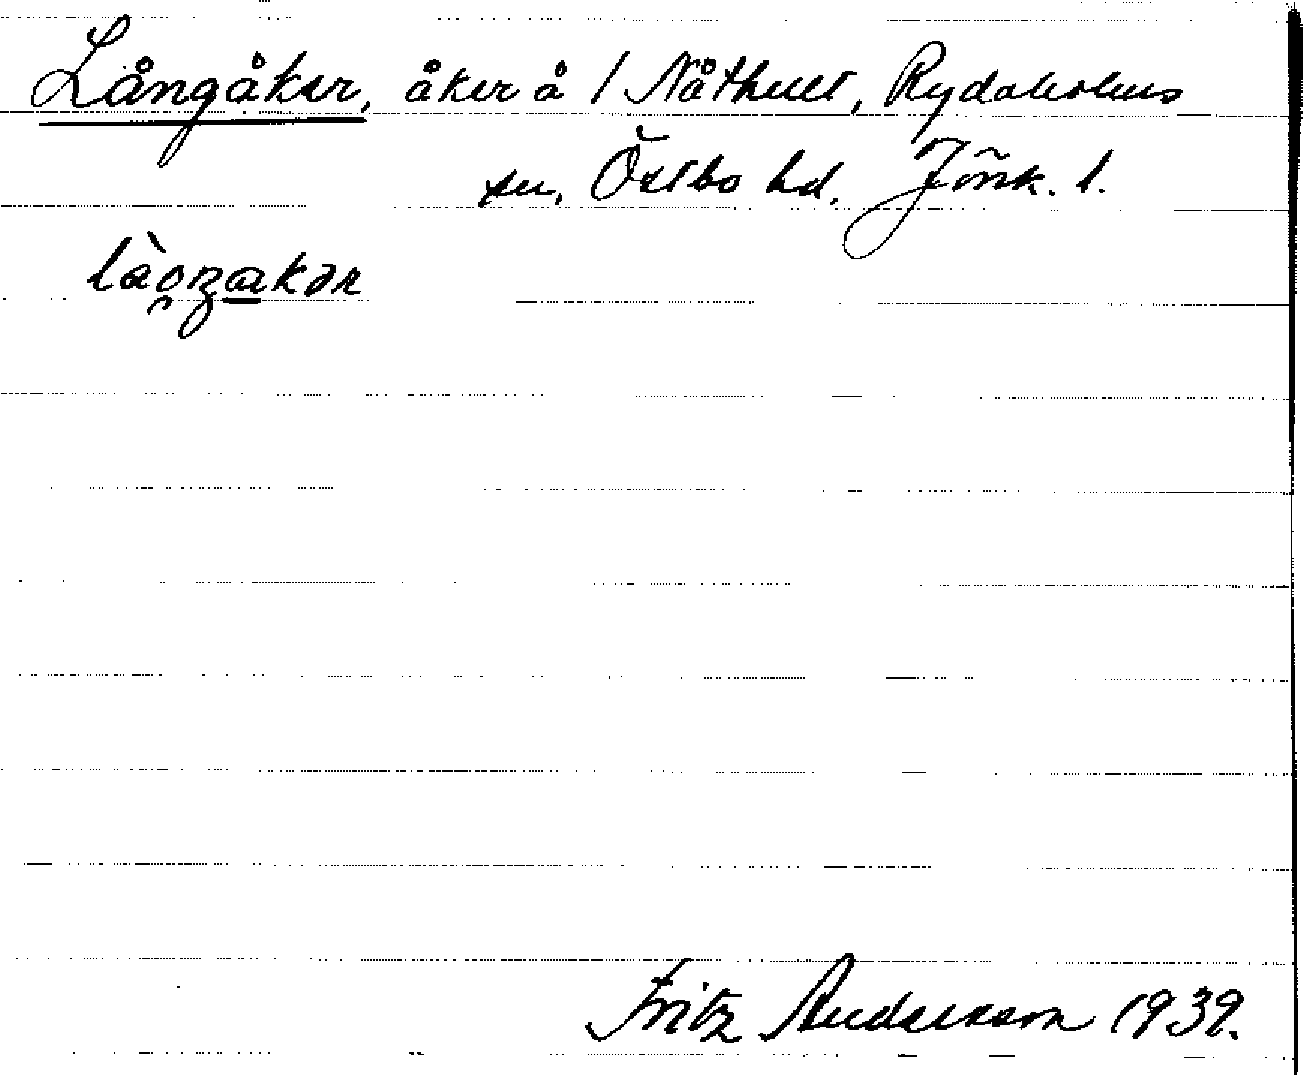 Långåker, åker å 1 Nåthult, Rydaholms
sn, Östbo hd, Jönk. l.
Fritz Andersson 1939.